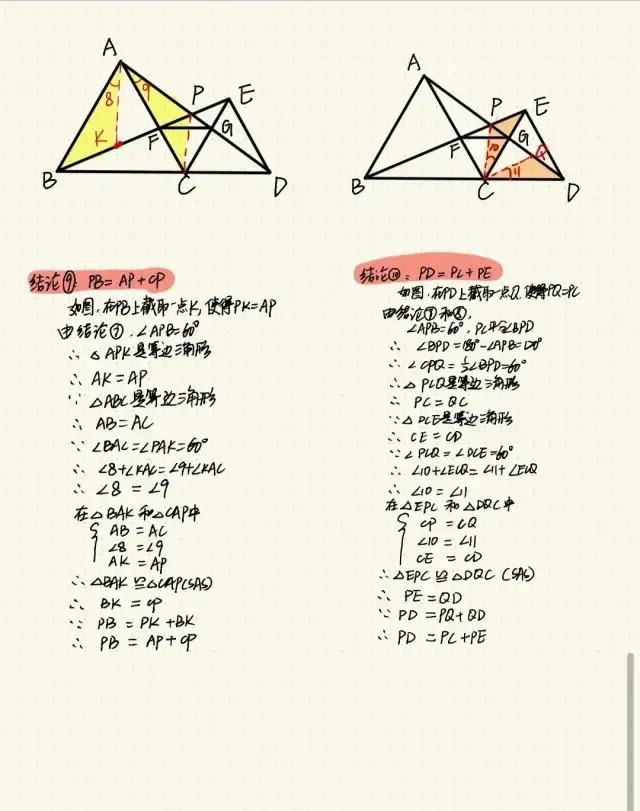 A
8
9
P
E
K
F
G
B
C
D
A
P
E
F
G
10
Q
11
B
C
D
结论⑨: PB = AP + CP
如图,在PB上截取一点K,使得PK=AP
由结论⑦,∠APB=60°
∴ △APK是等边三角形
∴ AK = AP
∵ △ABC是等边三角形
∴ AB = AC
∵ ∠BAC = ∠PAK = 60°
∴ ∠8+∠KAC = ∠9+∠KAC
∴ ∠8 = ∠9
在△BAK和△CAP中
AB = AC
∠8 = ∠9
AK = AP
∴ △BAK ≌ △CAP(SAS)
∴ BK = CP
∵ PB = PK + BK
∴ PB = AP + CP
结论⑩: PD = PC + PE
如图,在PD上截取一点Q,使得PQ=PC
由结论⑦和⑧,
∠APB=60°, PC平分∠BPD
∴ ∠BPD = 180° - ∠APB = 120°
∴ ∠CPQ = ½∠BPD = 60°
∴ △PCQ是等边三角形
∴ PC = QC
∵ △DCE是等边三角形
∴ CE = CD
∵ ∠PCQ = ∠DCE = 60°
∴ ∠10+∠ECQ = ∠11+∠ECQ
∴ ∠10 = ∠11
在△EPC和△DQC中
CP = CQ
∠10 = ∠11
CE = CD
∴ △EPC ≌ △DQC (SAS)
∴ PE = QD
∵ PD = PQ + QD
∴ PD = PC + PE